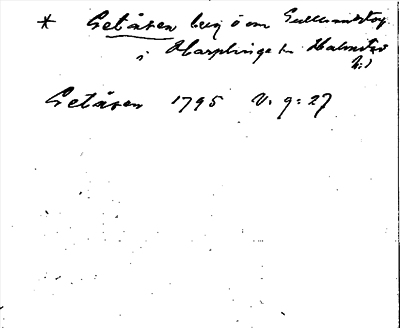 * Getåsen berg ö om Gullbrandstorp
i Harplinge sn Halmstad
h:d
Getåsen 1795 V. g: 27